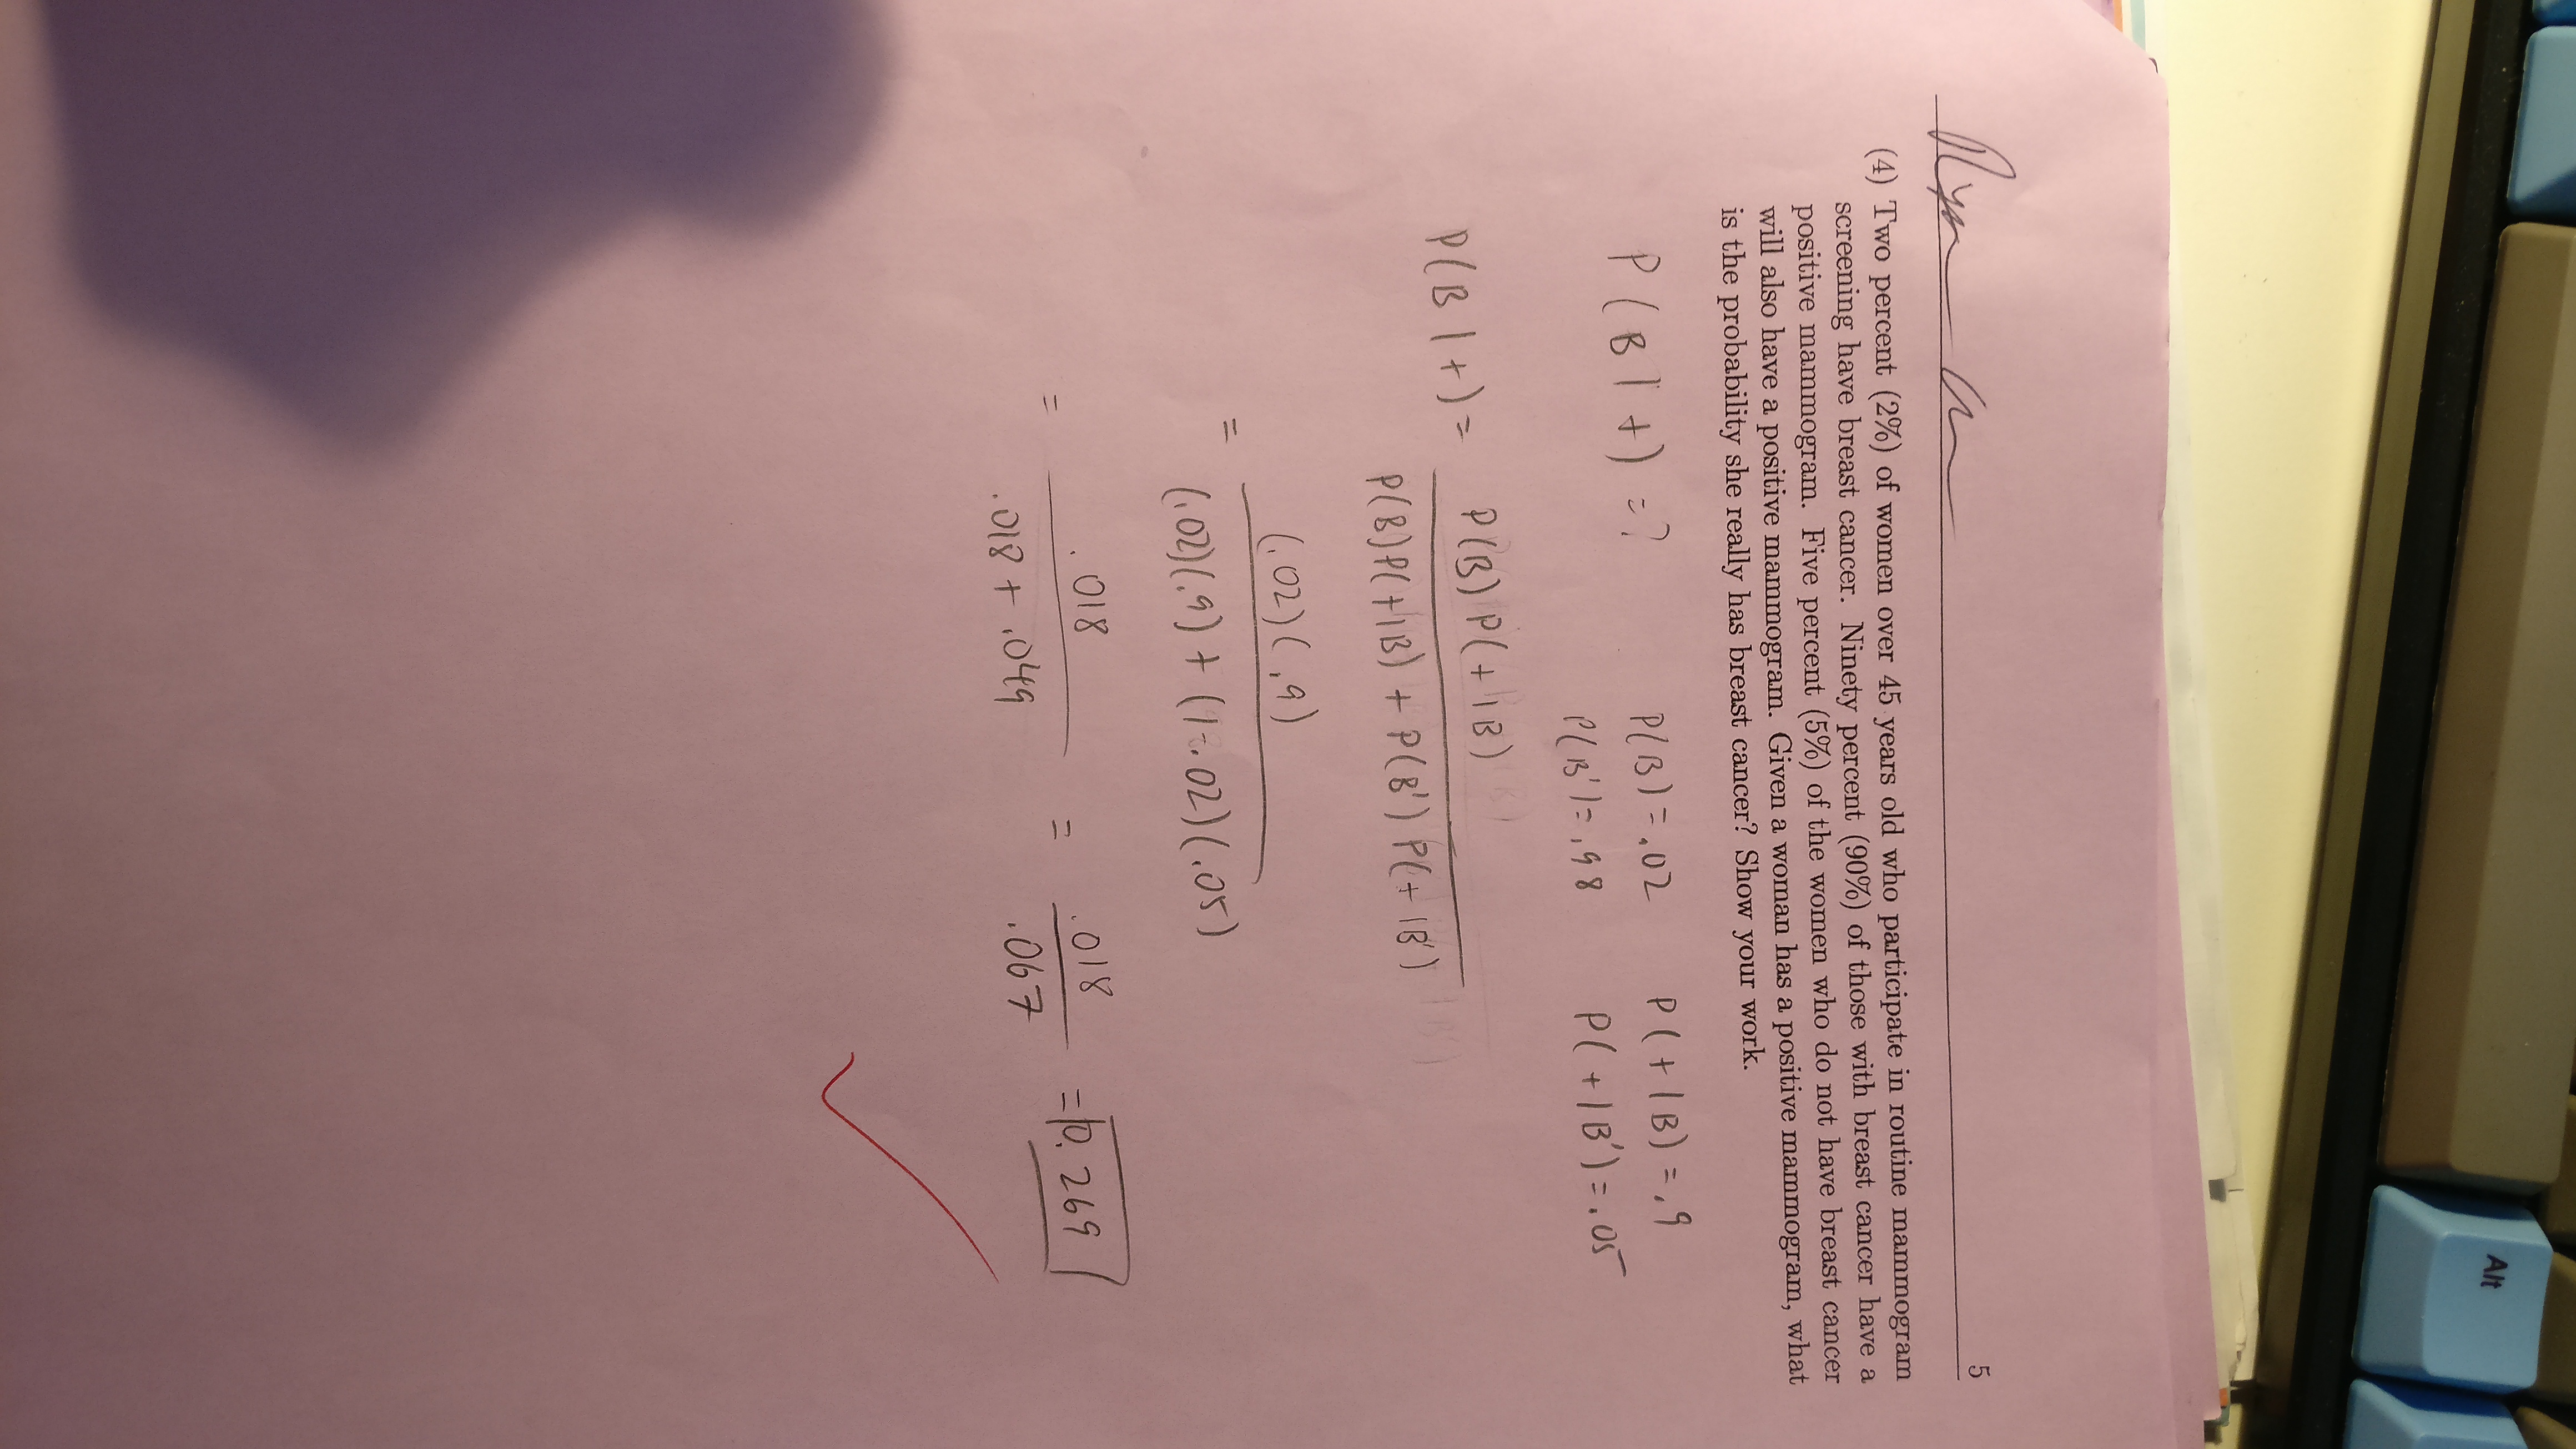 5
(4) Two percent (2%) of women over 45 years old who participate in routine mammogram
screening have breast cancer. Ninety percent (90%) of those with breast cancer have a
positive mammogram. Five percent (5%) of the women who do not have breast cancer
will also have a positive mammogram. Given a woman has a positive mammogram, what
is the probability she really has breast cancer? Show your work.
P(B|+) = ? P(B) = .02 P(+|B) = .9
P(B') = .98 P(+|B') = .05
P(B|+) = P(B)P(+|B)
P(B)P(+|B) + P(B')P(+|B')
= (.02)(.9)
(.02)(.9) + (1-.02)(.05)
= .018 = .018 = 0.269
.018 + .049 .067
Alt